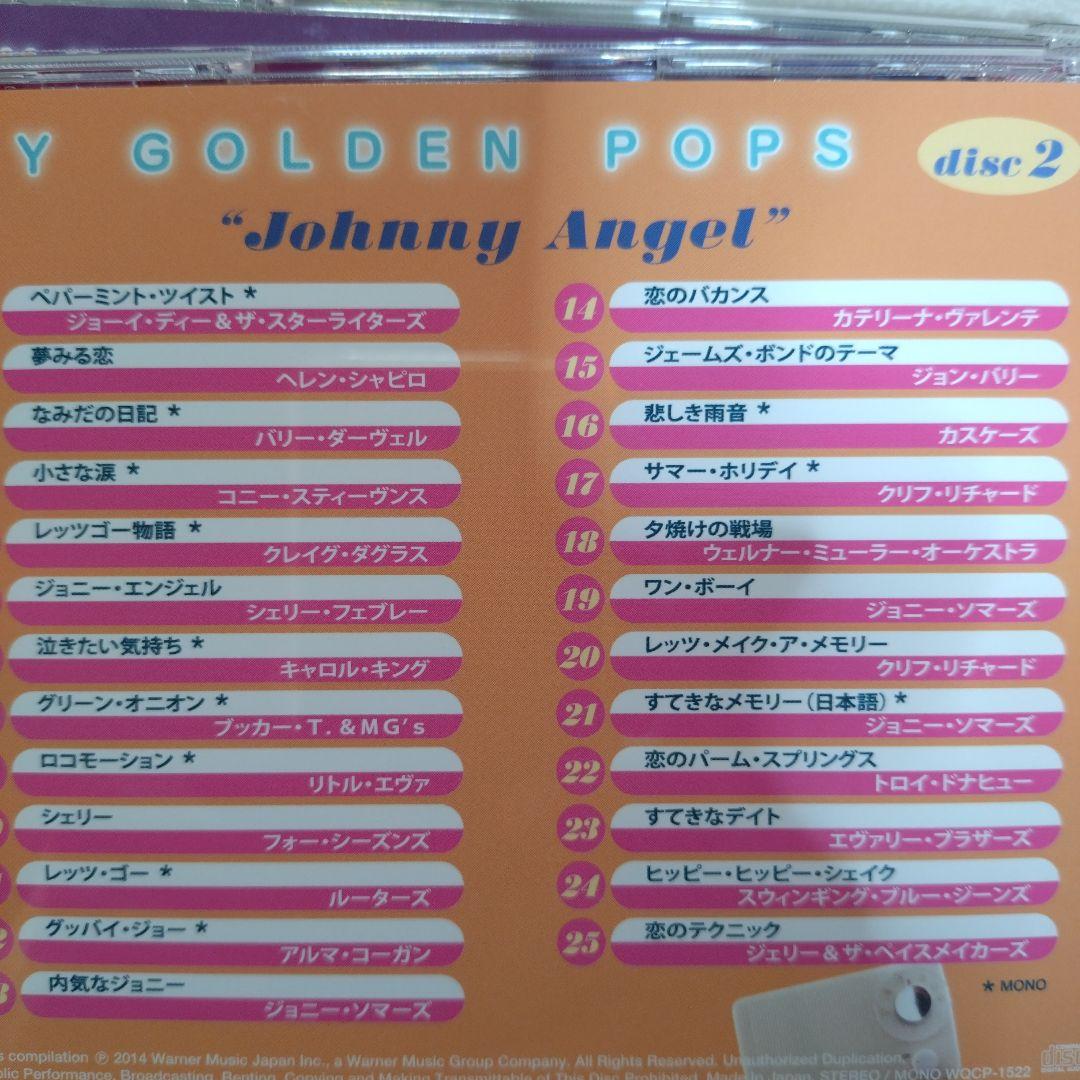 Y GOLDEN POPS
disc 2
“Johnny Angel”
ペパーミント・ツイスト *
ジョーイ・ディー&ザ・スターライターズ
夢みる恋
ヘレン・シャピロ
なみだの日記 *
バリー・ダーヴェル
小さな涙 *
コニー・スティーヴンス
レッツゴー物語 *
クレイグ・ダグラス
ジョニー・エンジェル
シェリー・フェブレー
泣きたい気持ち *
キャロル・キング
グリーン・オニオン *
ブッカー・T.&MG's
ロコモーション *
リトル・エヴァ
シェリー
フォー・シーズンズ
レッツ・ゴー *
ルーターズ
2 グッバイ・ジョー *
アルマ・コーガン
3 内気なジョニー
ジョニー・ソマーズ
14 恋のバカンス
カテリーナ・ヴァレンテ
15 ジェームズ・ボンドのテーマ
ジョン・バリー
16 悲しき雨音 *
カスケーズ
17 サマー・ホリデイ *
クリフ・リチャード
18 夕焼けの戦場
ウェルナー・ミューラー・オーケストラ
19 ワン・ボーイ
ジョニー・ソマーズ
20 レッツ・メイク・ア・メモリー
クリフ・リチャード
21 すてきなメモリー(日本語) *
ジョニー・ソマーズ
22 恋のパーム・スプリングス
トロイ・ドナヒュー
23 すてきなデイト
エヴァリー・ブラザーズ
24 ヒッピー・ヒッピー・シェイク
スウィンギング・ブルー・ジーンズ
25 恋のテクニック
ジェリー&ザ・ペイスメイカーズ
* MONO
s compilation ℗ 2014 Warner Music Japan Inc., a Warner Music Group Company. All Rights Reserved. Unauthorized Duplication,
blic Performance, Broadcasting, Renting, Copying and Making Transmittable of This Disc Prohibited. Made in Japan. STEREO / MONO WQCP-1522